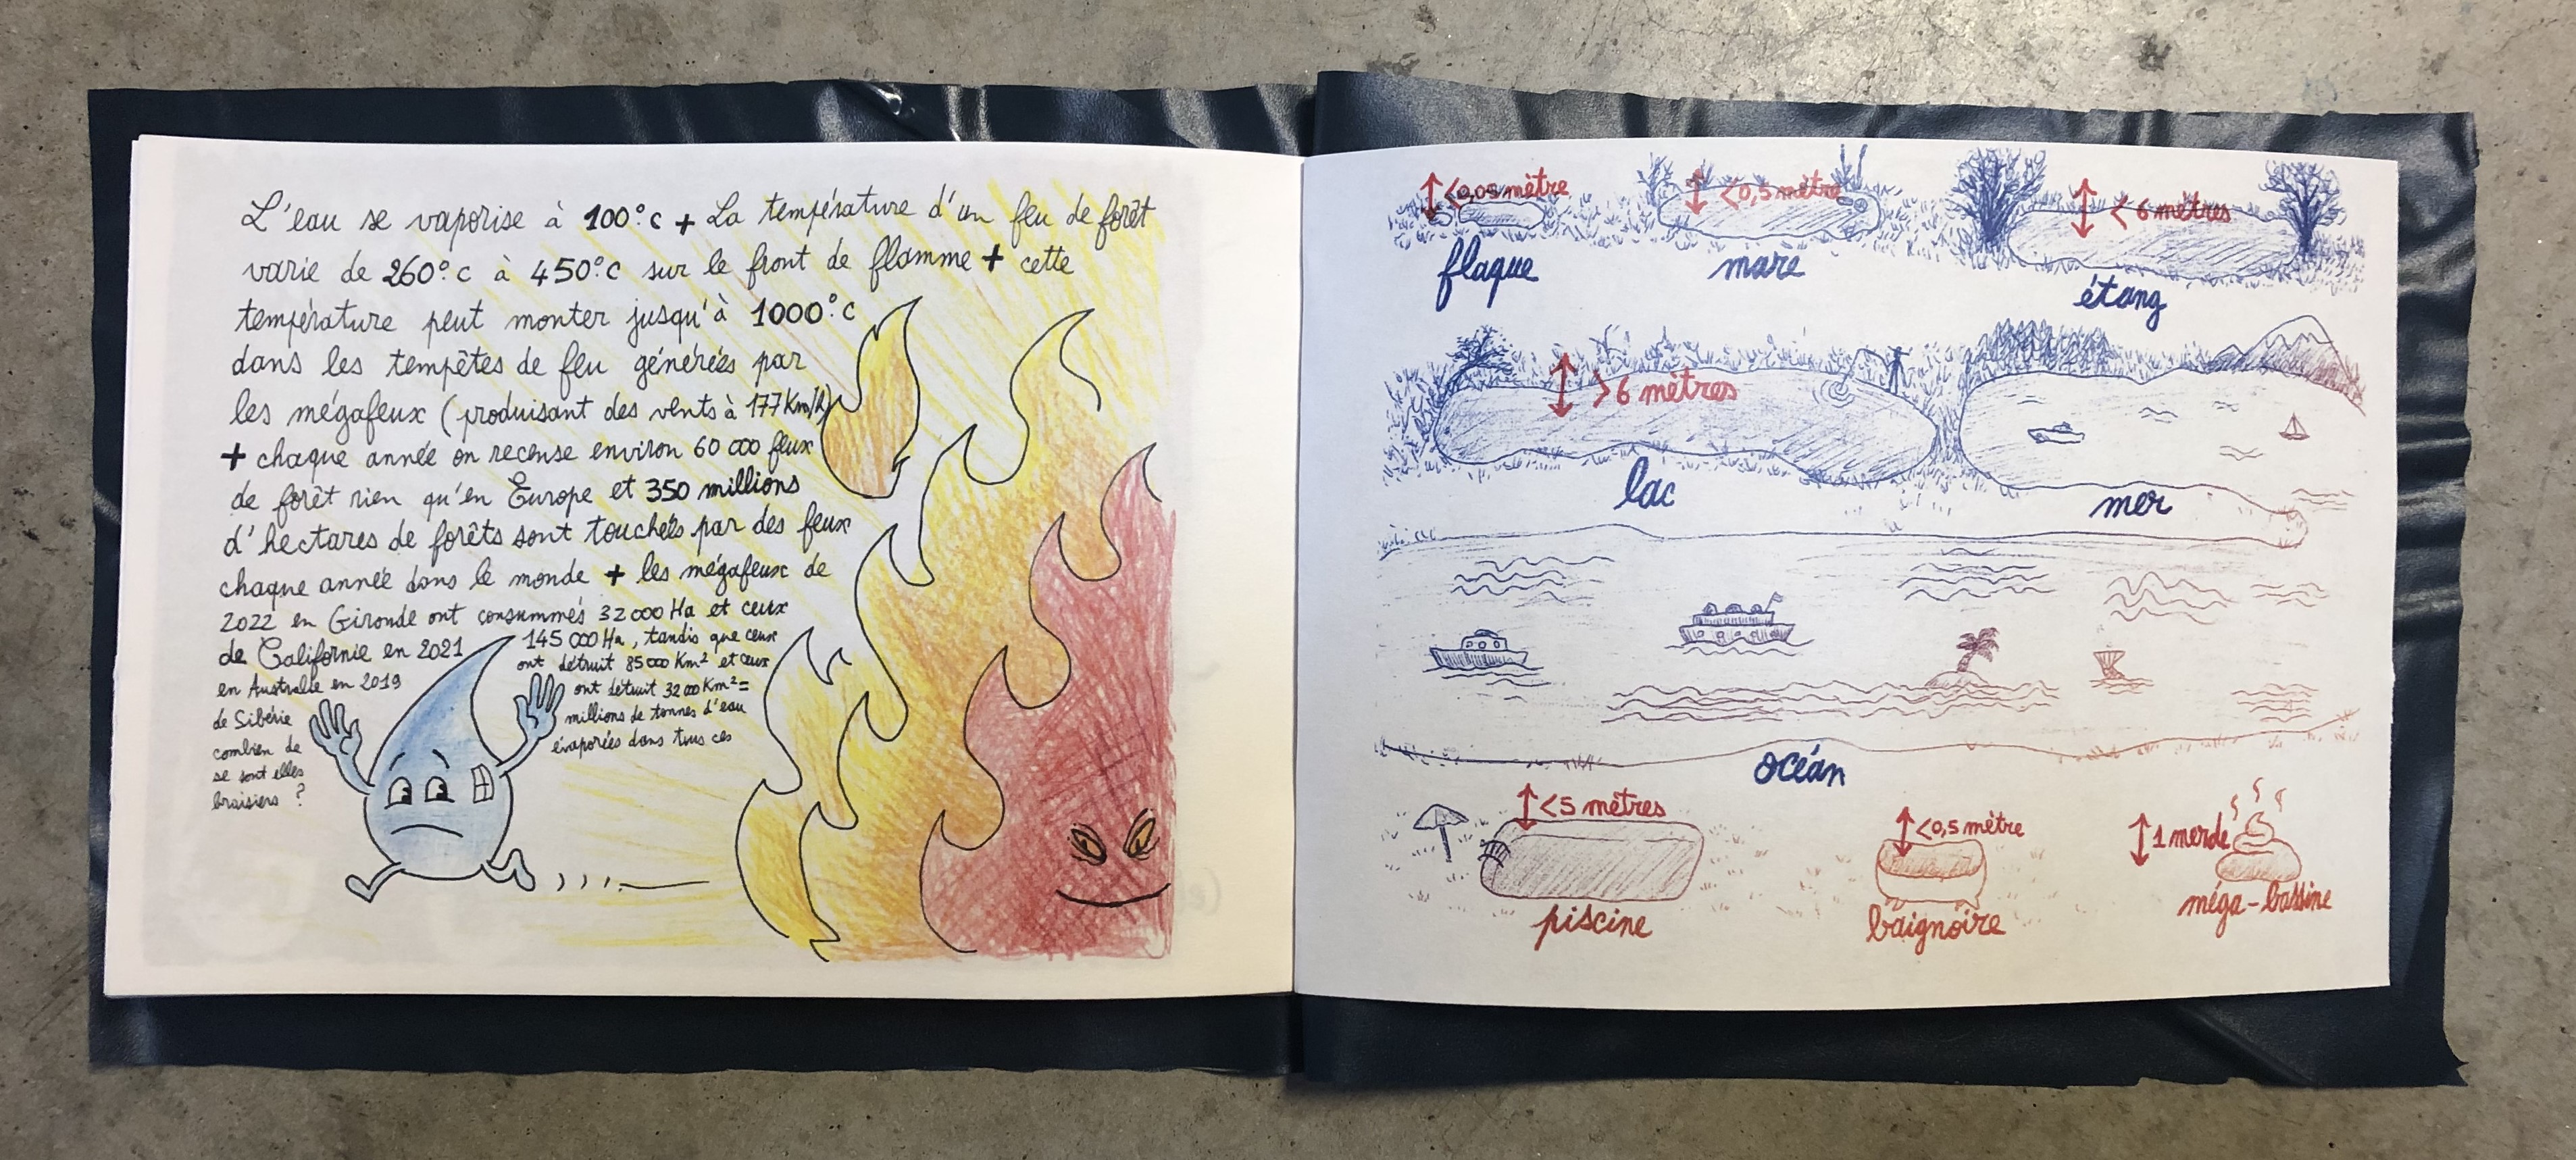 L'eau se vaporise à 100°c + La température d'un feu de forêt
varie de 260°c à 450°c sur le front de flamme + cette
température peut monter jusqu'à 1000°c
dans les tempêtes de feu générées par
les mégafeux (produisant des vents à 177 Km/h)
+ chaque année on recense environ 60 000 feux
de forêt rien qu'en Europe et 350 millions
d'hectares de forêts sont touchées par des feux
chaque année dans le monde + les mégafeux de
2022 en Gironde ont consummés 32 000 Ha et ceux
de Californie en 2021 145 000 Ha, tandis que ceux
en Australie en 2019 ont détruit 85 000 Km² et ceux
de Sibérie ont détruit 32 000 Km² =
combien de millions de tonnes d'eau
se sont elles évaporées dans tous ces
braisiers ?
<0,05 mètre
<0,5 mètre
< 6 mètres
flaque
mare
étang
>6 mètres
lac
mer
océan
<5 mètres
<0,5 mètre
1 merde
piscine
baignoire
méga-bassine